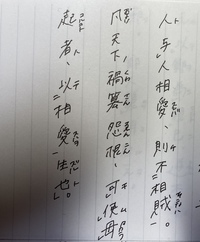 人与人相愛、則不相賊。
凡天下禍簒怨恨、可使毋
起者、以相愛生也。